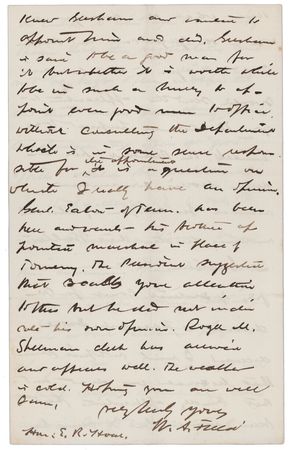 knew Gresham and wanted to
appoint him and did. Gresham
is said to be a good man for
it but whether it is worth while
to be in such a hurry to ap-
point even good men to office
without consulting the Department
which is in some sense respon-
sible for the appointment is a question on
which I really have an opinion.
Genl. Eaton of Tenn. has been
here and wants his brother ap-
pointed marshal in place of
The President suggested
that I call your attention
to this but he did not indi-
cate his own opinion. Roger M.
Sherman clerk has arrived
and appears well. The weather
is cold. Hoping you are well
I am,
very truly yours
W. A. Field
Hon. E. R. Hoar.